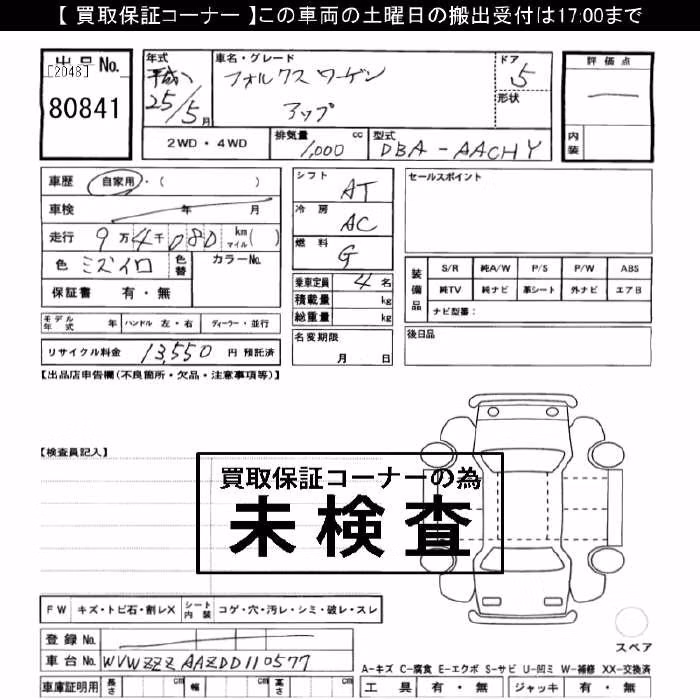 【 買取保証コーナー 】この車両の土曜日の搬出受付は17:00まで
出品No.
[2048]
80841
年式
平成
25/5月
車名・グレード
フォルクスワーゲン
アップ
ドア
5
形状
評価点
内装
2WD・4WD
排気量 cc
1,000
型式
DBA-AACHY
車歴 自家用・( )
車検 年 月
走行 9万4千080 km マイル( )
色 ミズイロ 色替 カラーNo.
保証書 有・無
モデル年式 年 ハンドル 左・右 ディーラー・並行
リサイクル料金 13,550 円 預託済
シフト AT
冷房 AC
燃料 G
乗車定員 4名
積載量 kg
総重量 kg
名変期限
月 日
セールスポイント
装備品
S/R 純A/W P/S P/W ABS
純TV 純ナビ 革シート 外ナビ エアB
ナビ型番:
後日品
【出品店申告欄(不良箇所・欠品・注意事項等)】
【検査員記入】
買取保証コーナーの為
未検査
FW キズ・トビ石・割レX シート内装 コゲ・穴・汚レ・シミ・破レ・スレ
登録No.
車台No. WVWZZZAAZDD110577
車庫証明用 長さ cm 幅 cm 高さ cm
スペア
A-キズ C-腐食 E-エクボ S-サビ U-凹ミ W-補修 XX-交換済
工具 有・無 ジャッキ 有・無